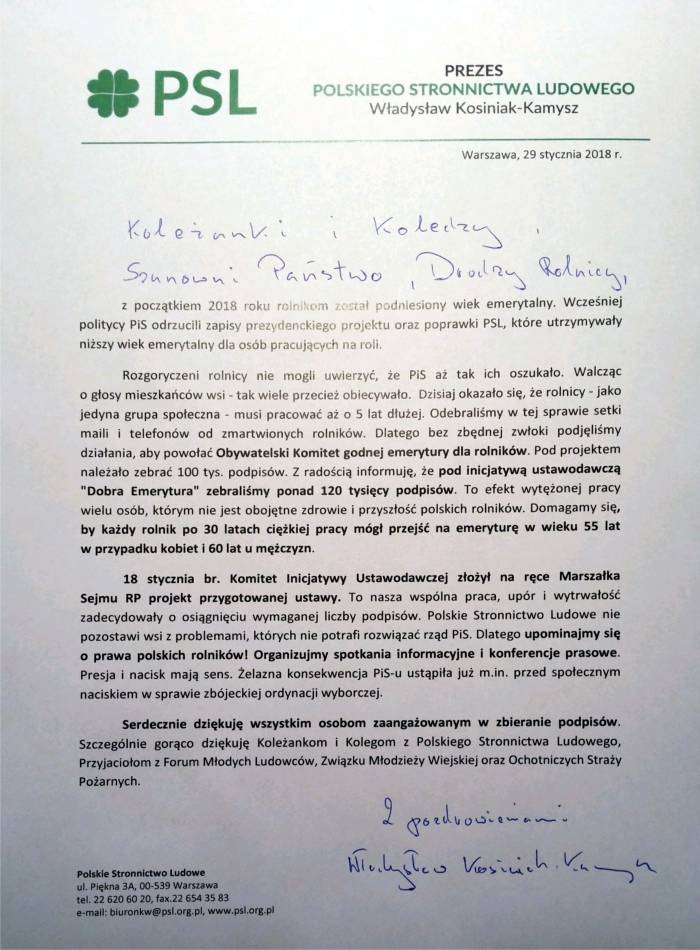 PSL
PREZES
POLSKIEGO STRONNICTWA LUDOWEGO
Władysław Kosiniak-Kamysz
Warszawa, 29 stycznia 2018 r.
Koleżanki i Koledzy,
Szanowni Państwo, Drodzy Rolnicy,
z początkiem 2018 roku rolnikom został podniesiony wiek emerytalny. Wcześniej
politycy PiS odrzucili zapisy prezydenckiego projektu oraz poprawki PSL, które utrzymywały
niższy wiek emerytalny dla osób pracujących na roli.
Rozgoryczeni rolnicy nie mogli uwierzyć, że PiS aż tak ich oszukało. Walcząc
o głosy mieszkańców wsi - tak wiele przecież obiecywało. Dzisiaj okazało się, że rolnicy - jako
jedyna grupa społeczna - musi pracować aż o 5 lat dłużej. Odebraliśmy w tej sprawie setki
maili i telefonów od zmartwionych rolników. Dlatego bez zbędnej zwłoki podjęliśmy
działania, aby powołać Obywatelski Komitet godnej emerytury dla rolników. Pod projektem
należało zebrać 100 tys. podpisów. Z radością informuję, że pod inicjatywą ustawodawczą
"Dobra Emerytura" zebraliśmy ponad 120 tysięcy podpisów. To efekt wytężonej pracy
wielu osób, którym nie jest obojętne zdrowie i przyszłość polskich rolników. Domagamy się,
by każdy rolnik po 30 latach ciężkiej pracy mógł przejść na emeryturę w wieku 55 lat
w przypadku kobiet i 60 lat u mężczyzn.
18 stycznia br. Komitet Inicjatywy Ustawodawczej złożył na ręce Marszałka
Sejmu RP projekt przygotowanej ustawy. To nasza wspólna praca, upór i wytrwałość
zadecydowały o osiągnięciu wymaganej liczby podpisów. Polskie Stronnictwo Ludowe nie
pozostawi wsi z problemami, których nie potrafi rozwiązać rząd PiS. Dlatego upominajmy się
o prawa polskich rolników! Organizujmy spotkania informacyjne i konferencje prasowe.
Presja i nacisk mają sens. Żelazna konsekwencja PiS-u ustąpiła już m.in. przed społecznym
naciskiem w sprawie zbójeckiej ordynacji wyborczej.
Serdecznie dziękuję wszystkim osobom zaangażowanym w zbieranie podpisów.
Szczególnie gorąco dziękuję Koleżankom i Kolegom z Polskiego Stronnictwa Ludowego,
Przyjaciołom z Forum Młodych Ludowców, Związku Młodzieży Wiejskiej oraz Ochotniczych Straży
Pożarnych.
Z pozdrowieniami
Władysław Kosiniak-Kamysz
Polskie Stronnictwo Ludowe
ul. Piękna 3A, 00-539 Warszawa
tel. 22 620 60 20, fax.22 654 35 83
e-mail: biuronkw@psl.org.pl, www.psl.org.pl